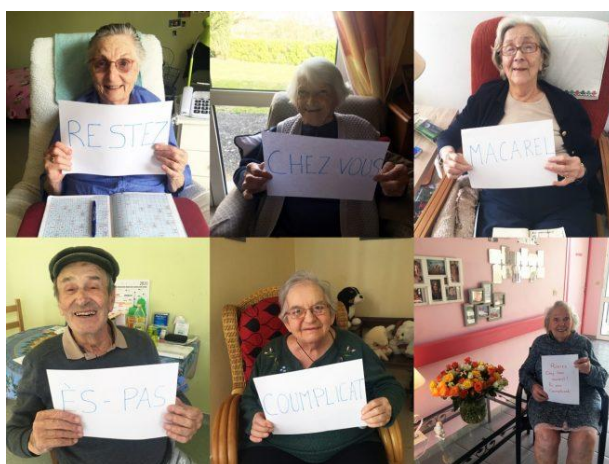 RESTEZ
CHEZ VOUS
MACAREL
ÈS-PAS
COUMPLICAT